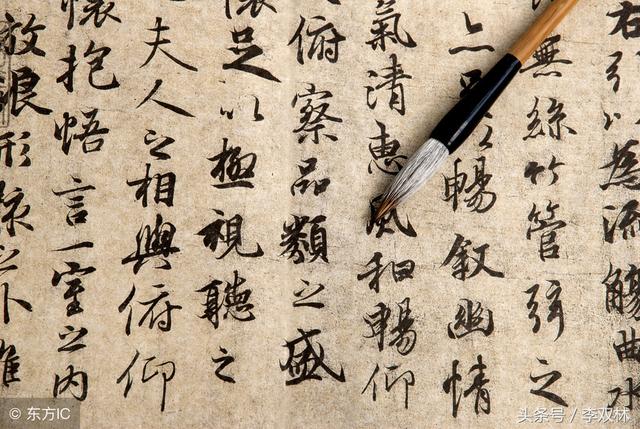 右以為流觴曲水
無絲竹管弦之
亦足以暢叙幽情
氣清惠風和暢仰
俯察品類之盛
懷足以極視聽之
夫人之相與俯仰
懷抱悟言一室之内
放浪形骸之外雖
© 东方IC
头条号／李双林